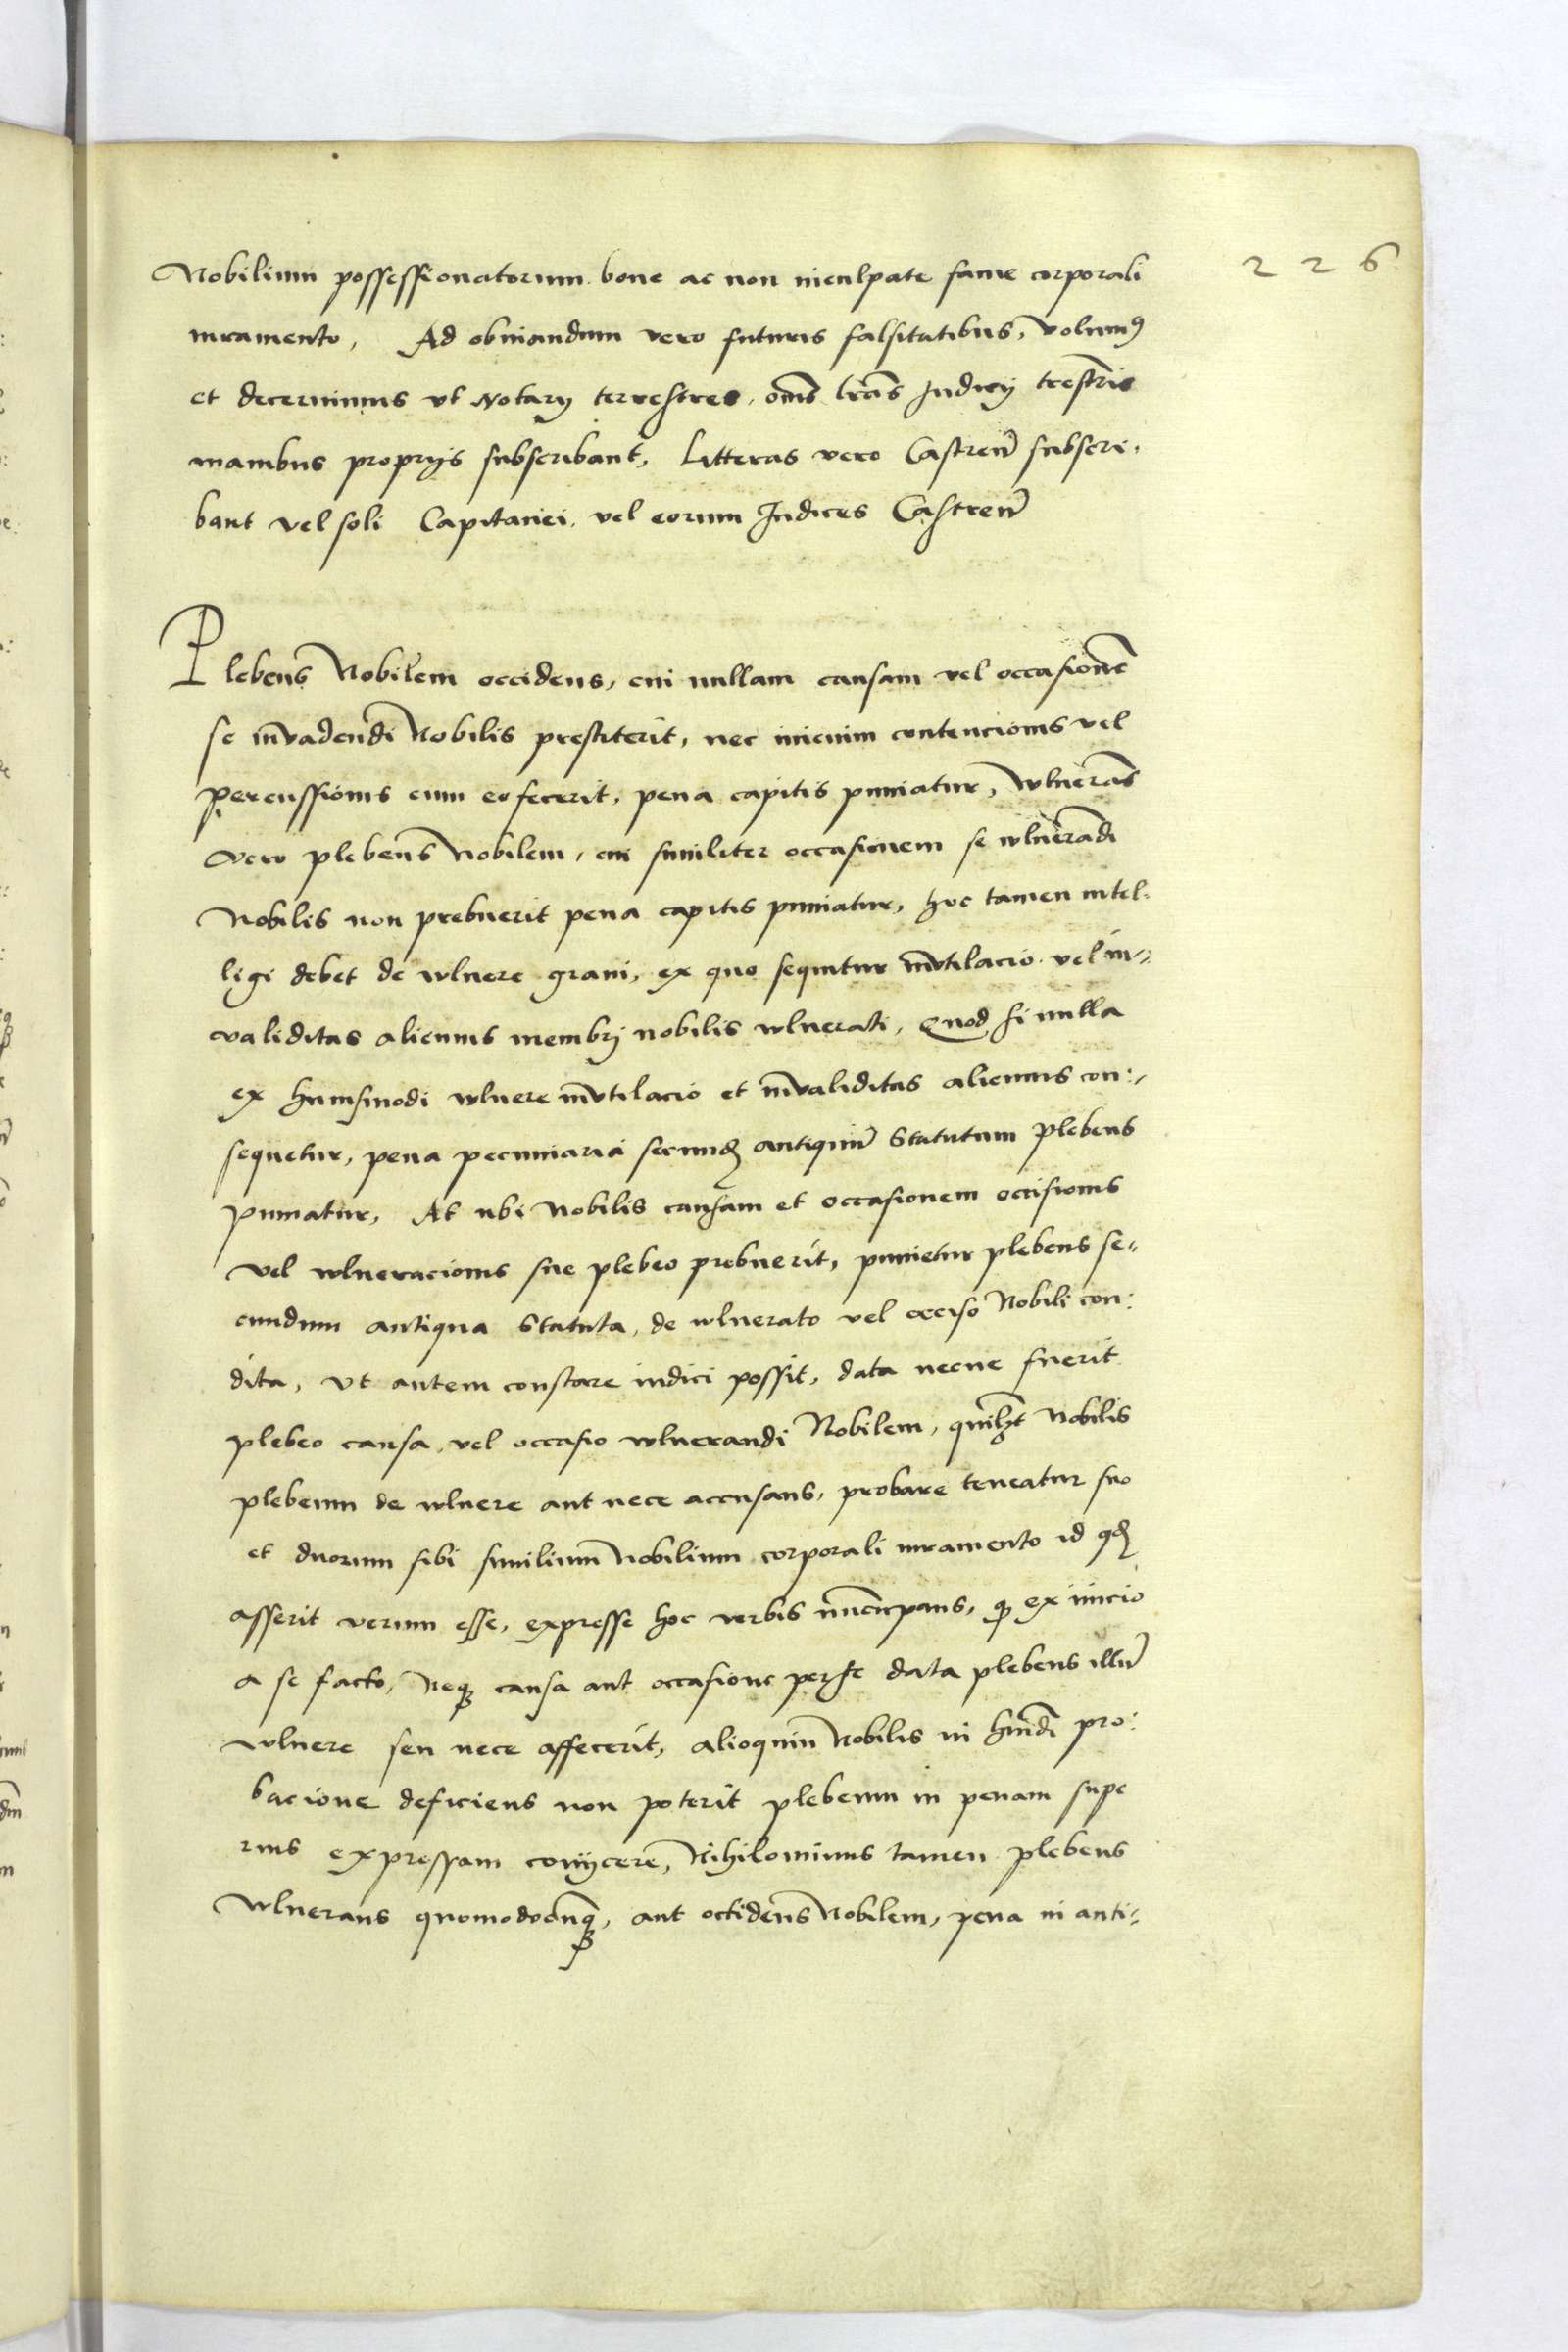 226
Nobilium possessionatorum bone ac non inculpate fame corporali
iuramento, Ad obuiandum vero futuris falsitatibus, volumꝰ
et decernimus vt Notarij terrestres, om̄s lr̄as Judicij trestris
manibus proprijs subscribant, Litteras vero Castren̄ subscri,
bant vel soli Capitanei, vel eorum Judices Castren̄
Plebeus Nobilem occidens, cui nullam causam vel occasionē
se invadendi Nobilis prestiterit, nec inicium contencionis vel
percussionis cum eo fecerit, pena capitis puniatur, wlnerās
vero plebeus Nobilem, cui similiter occasionem se wlnerandi
Nobilis non prebuerit pena capitis puniatur, hoc tamen intel,
ligi debet de wlnere graui, ex quo sequitur mutilacio vel in,,
validitas alicuius membrj nobilis wlnerati, Quod si nulla
ex huiusmodi wlnere mutilacio et invaliditas alicuius con:,
sequetur, pena pecuniaria secundꝫ antiquū Statutum plebeus
puniatur, At ubi Nobilis causam et occasionem occisionis
vel wlneracionis sue plebeo prebuerit, punietur plebeus se,,
cundum antiqua Statuta, de wlnerato vel occiso Nobili con:
dita, vt autem constare iudici possit, data necne fuerit
plebeo causa, vel occasio wlnerandi Nobilem, quilꝫt Nobilis
plebeum de wlnere aut nece accusans, probare teneatur suo
et duorum sibi similium Nobilium corporali iuramento id qđ
asserit verum esse, expresse hoc verbis nuncupans, qꝫ ex inicio
a se facto, Neqꝫ causa aut occasione per se data plebeus illū
wlnere seu nece affecerit, alioquin Nobilis in hmōdi pro:
bacione deficiens non poterit plebeum in penam supe
rius expressam conijcere, Nihilominus tamen plebeus
wlnerans quomodocunqꝫ, aut occidens Nobilem, pena in anti,,